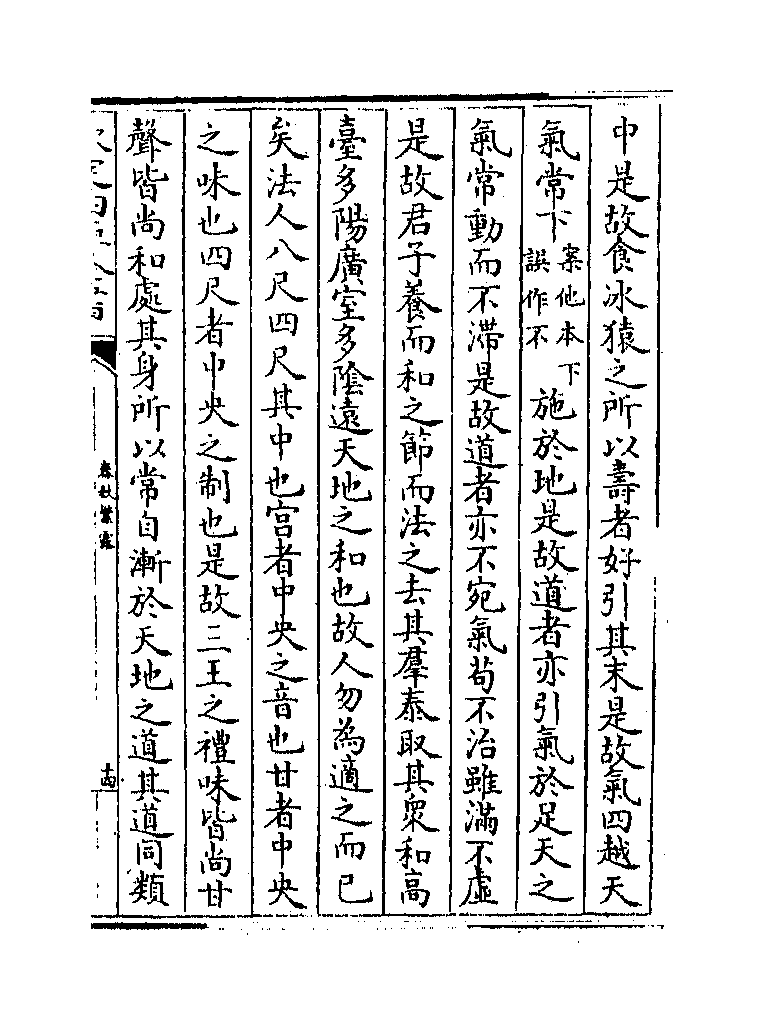 中是故食冰猿之所以壽者好引其末是故氣四越天
氣常下案他本下誤作不施於地是故道者亦引氣於足天之
氣常動而不滯是故道者亦不宛氣茍不治雖滿不虛
是故君子養而和之節而法之去其羣泰取其衆和高
臺多陽廣室多隂逺天地之和也故人勿為適之而已
矣法人八尺四尺其中也宫者中央之音也甘者中央
之味也四尺者中央之制也是故三王之禮味皆尚甘
聲皆尚和處其身所以常自漸於天地之道其道同類
春秋繁露
十四